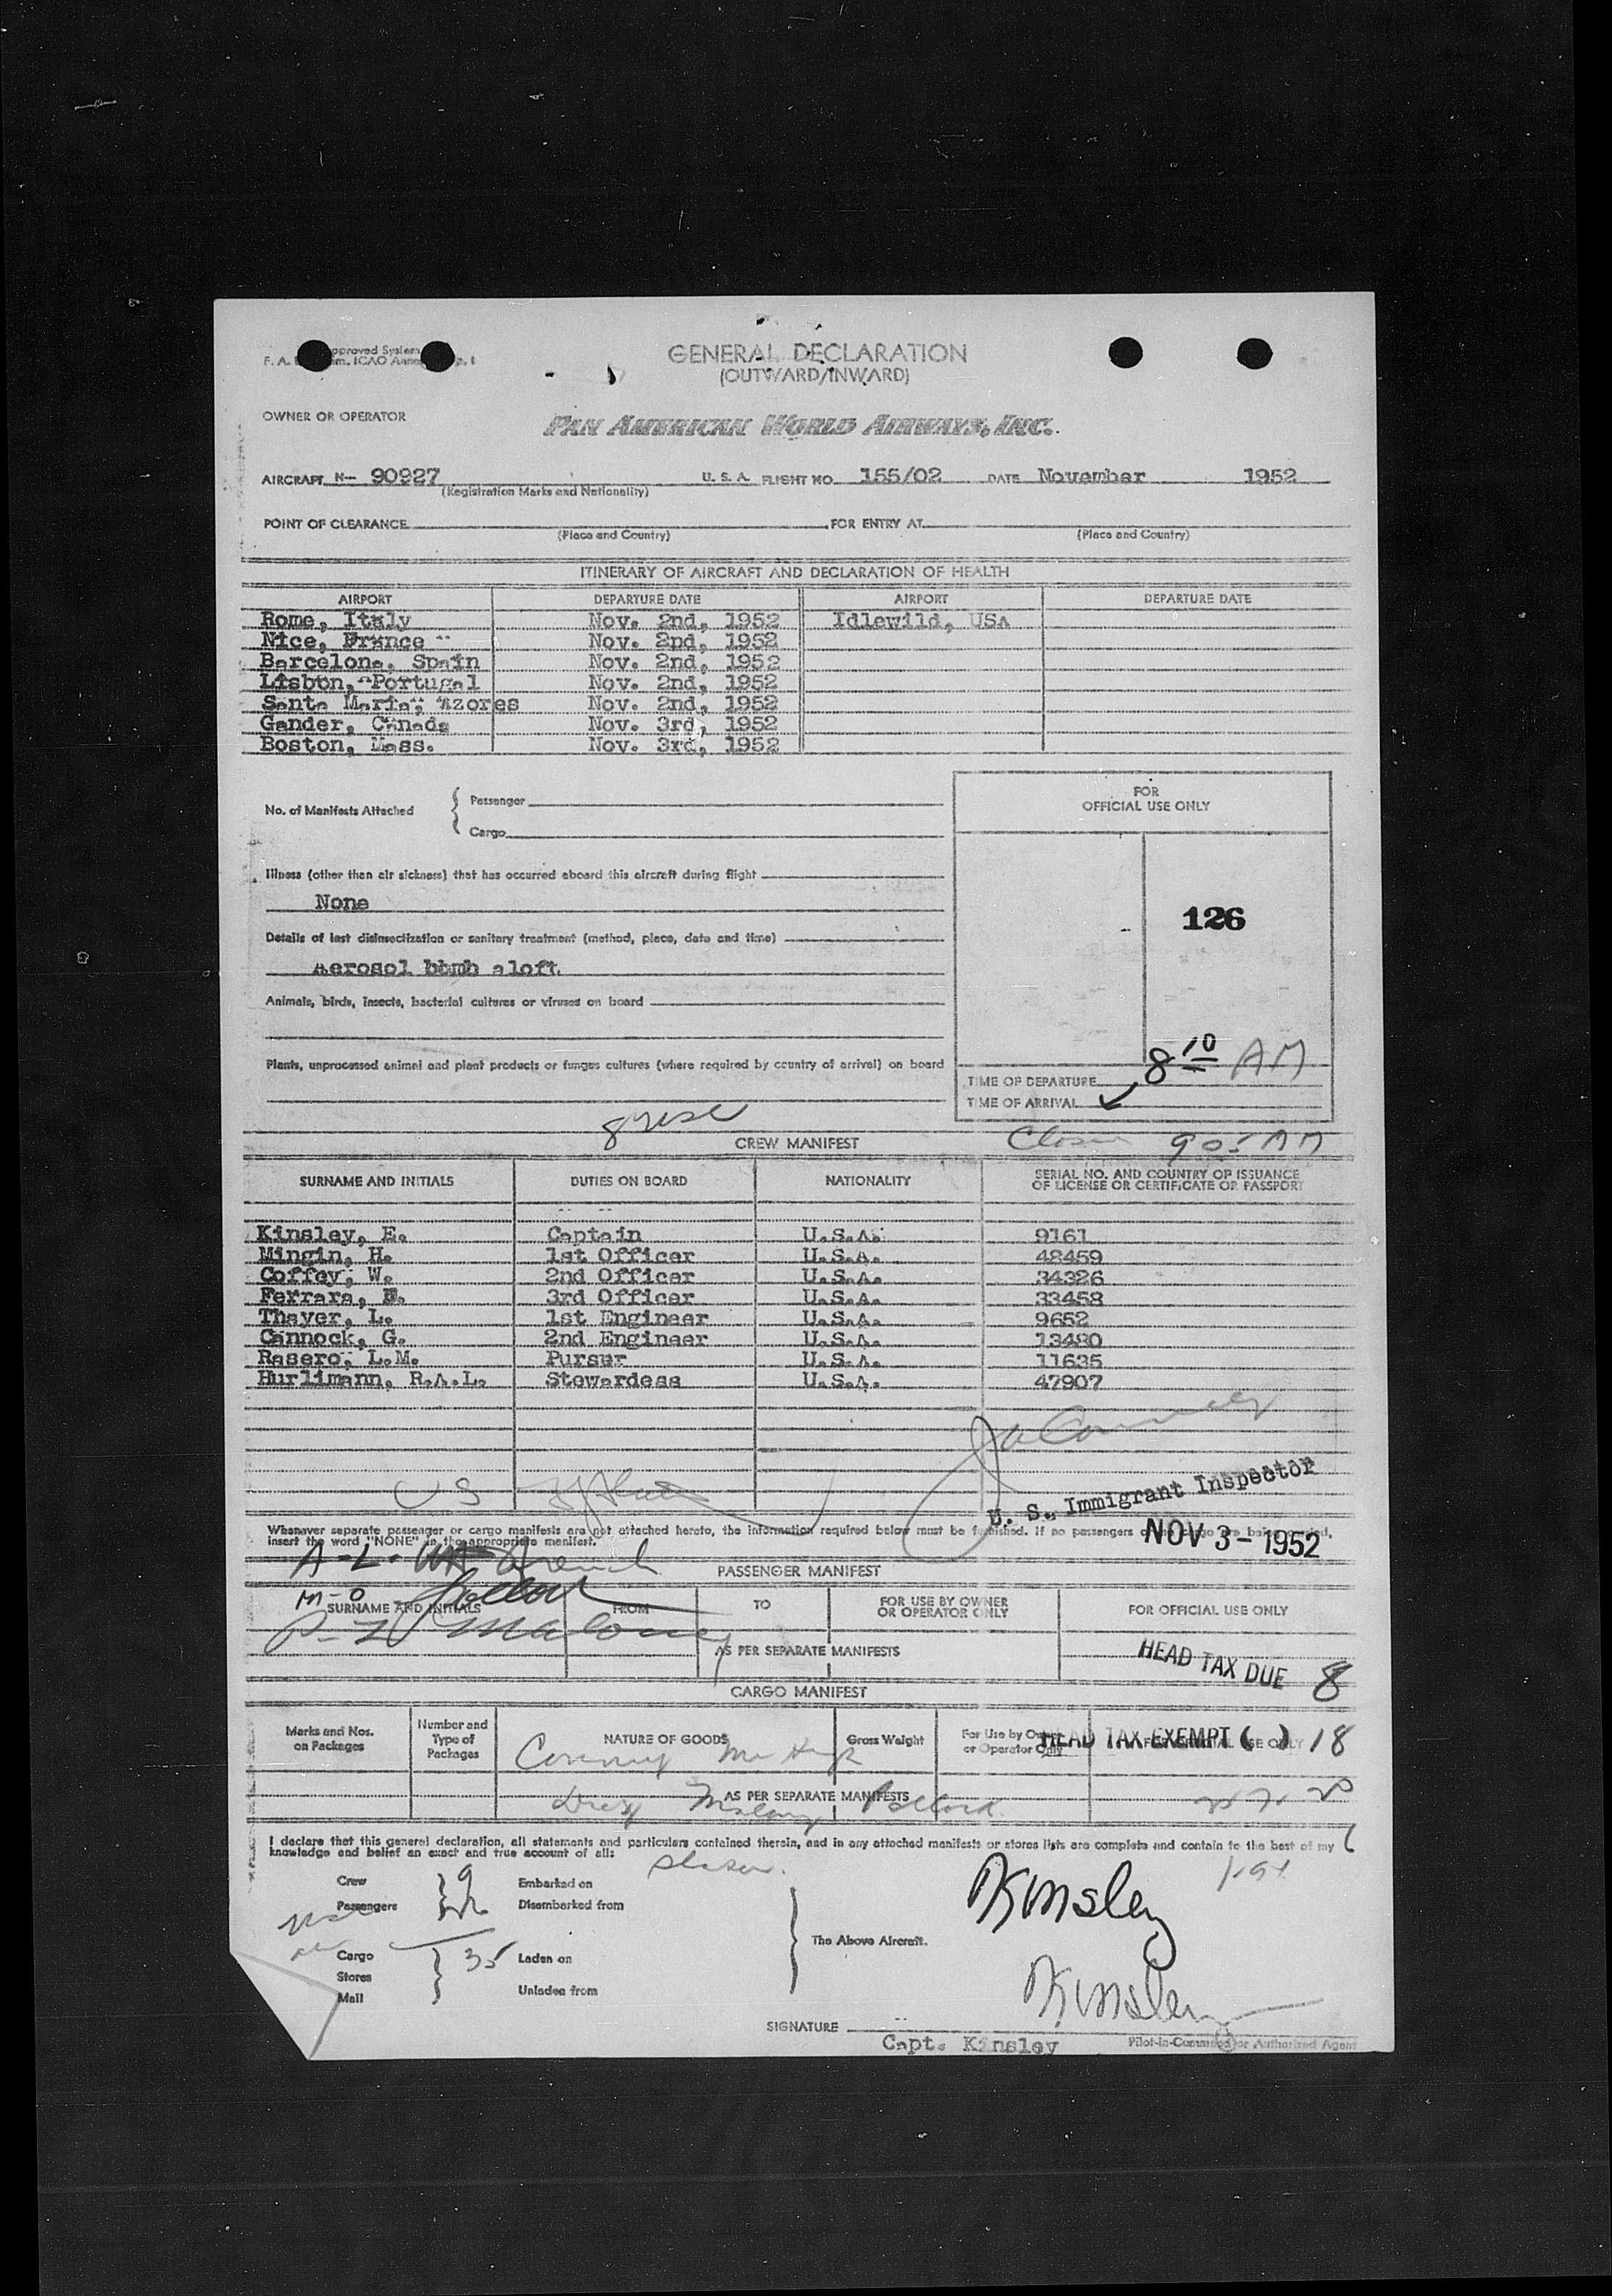 GENERAL DECLARATION
(OUTWARD/INWARD)
OWNER OR OPERATOR PAN AMERICAN WORLD AIRWAYS, INC.
AIRCRAFT N- 90927 U. S. A. FLIGHT NO. 155/02 DATE November 1952
(Registration Marks and Nationality)
POINT OF CLEARANCE FOR ENTRY AT
(Place and Country) (Place and Country)
ITINERARY OF AIRCRAFT AND DECLARATION OF HEALTH
AIRPORT DEPARTURE DATE AIRPORT DEPARTURE DATE
Rome, Italy Nov. 2nd, 1952 Idlewild, USA
Nice, France Nov. 2nd, 1952
Barcelona, Spain Nov. 2nd, 1952
Lisbon, Portugal Nov. 2nd, 1952
Santa Maria, Azores Nov. 2nd, 1952
Gander, Canada Nov. 3rd, 1952
Boston, Mass. Nov. 3rd, 1952
No. of Manifests Attached { Passenger
Cargo
FOR
OFFICIAL USE ONLY
Illness (other than air sickness) that has occurred aboard this aircraft during flight
None
126
Details of last disinsectization or sanitary treatment (method, place, date and time)
Aerosol bomb aloft
Animals, birds, insects, bacterial cultures or viruses on board
Plants, unprocessed animal and plant products or fungus cultures (where required by country of arrival) on board
8 10 AM
TIME OF DEPARTURE
TIME OF ARRIVAL
8 usc
CREW MANIFEST
9 05 AM
SURNAME AND INITIALS DUTIES ON BOARD NATIONALITY SERIAL NO. AND COUNTRY OF ISSUANCE
OF LICENSE OR CERTIFICATE OR PASSPORT
Kinsley, E. Captain U.S.A. 9161
Mingin, H. 1st Officer U.S.A. 48459
Coffey, W. 2nd Officer U.S.A. 34326
Ferrara, E. 3rd Officer U.S.A. 33458
Thayer, L. 1st Engineer U.S.A. 9652
Cannock, G. 2nd Engineer U.S.A. 13480
Rasero, L.M. Pursur U.S.A. 11635
Hurlimann, R.A.L. Stewardess U.S.A. 47907
US
U. S. Immigrant Inspector
NOV 3 - 1952
Whenever separate passenger or cargo manifests are not attached hereto, the information required below must be furnished. If no passengers or no cargo are being carried,
insert the word "NONE" in the appropriate manifest.
A-L.
PASSENGER MANIFEST
M-O Pollock
SURNAME AND INITIALS FROM TO FOR USE BY OWNER
OR OPERATOR ONLY FOR OFFICIAL USE ONLY
P-Z Maloney
AS PER SEPARATE MANIFESTS
HEAD TAX DUE 8
CARGO MANIFEST
Marks and Nos.
on Packages Number and
Type of
Packages NATURE OF GOODS Gross Weight For Use by Owner
or Operator Only FOR OFFICIAL USE ONLY
HEAD TAX EXEMPT ( ) 18
AS PER SEPARATE MANIFESTS
Maloney Pollock
I declare that this general declaration, all statements and particulars contained therein, and in any attached manifests or stores lists are complete and contain to the best of my
knowledge and belief an exact and true account of all:
Crew 9 Embarked on
Passengers Disembarked from
Kinsley
The Above Aircraft.
Cargo 35 Laden on
Stores
Mail Unladen from
Kinsley
SIGNATURE
Capt. Kinsley Pilot-in-Command or Authorized Agent